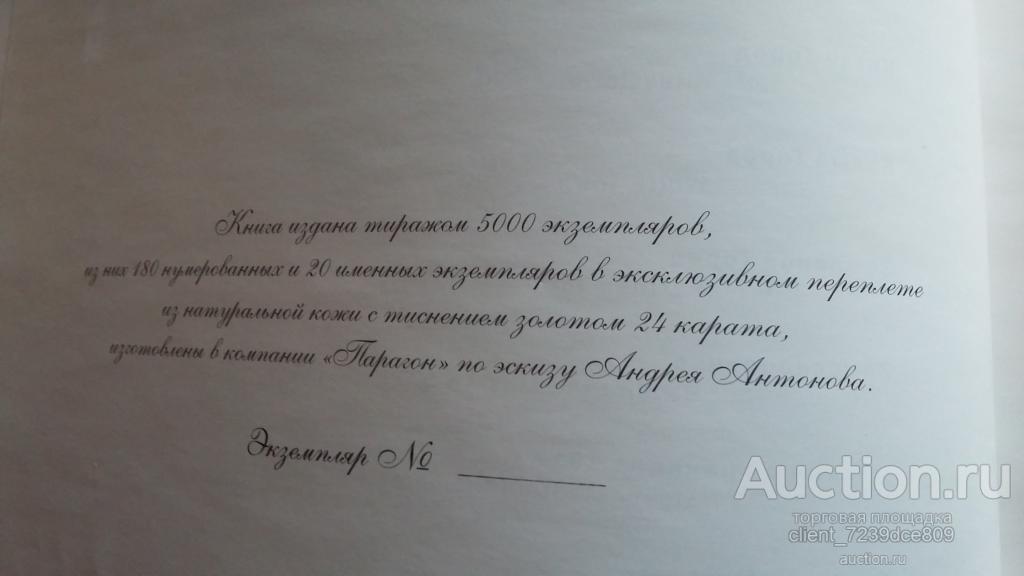 Книга издана тиражом 5000 экземпляров,
из них 180 нумерованных и 20 именных экземпляров в эксклюзивном переплете
из натуральной кожи с тиснением золотом 24 карата,
изготовлены в компании «Парагон» по эскизу Андрея Антонова.
Экземпляр №
Auction.ru
торговая площадка
client_7239dce809
auction.ru